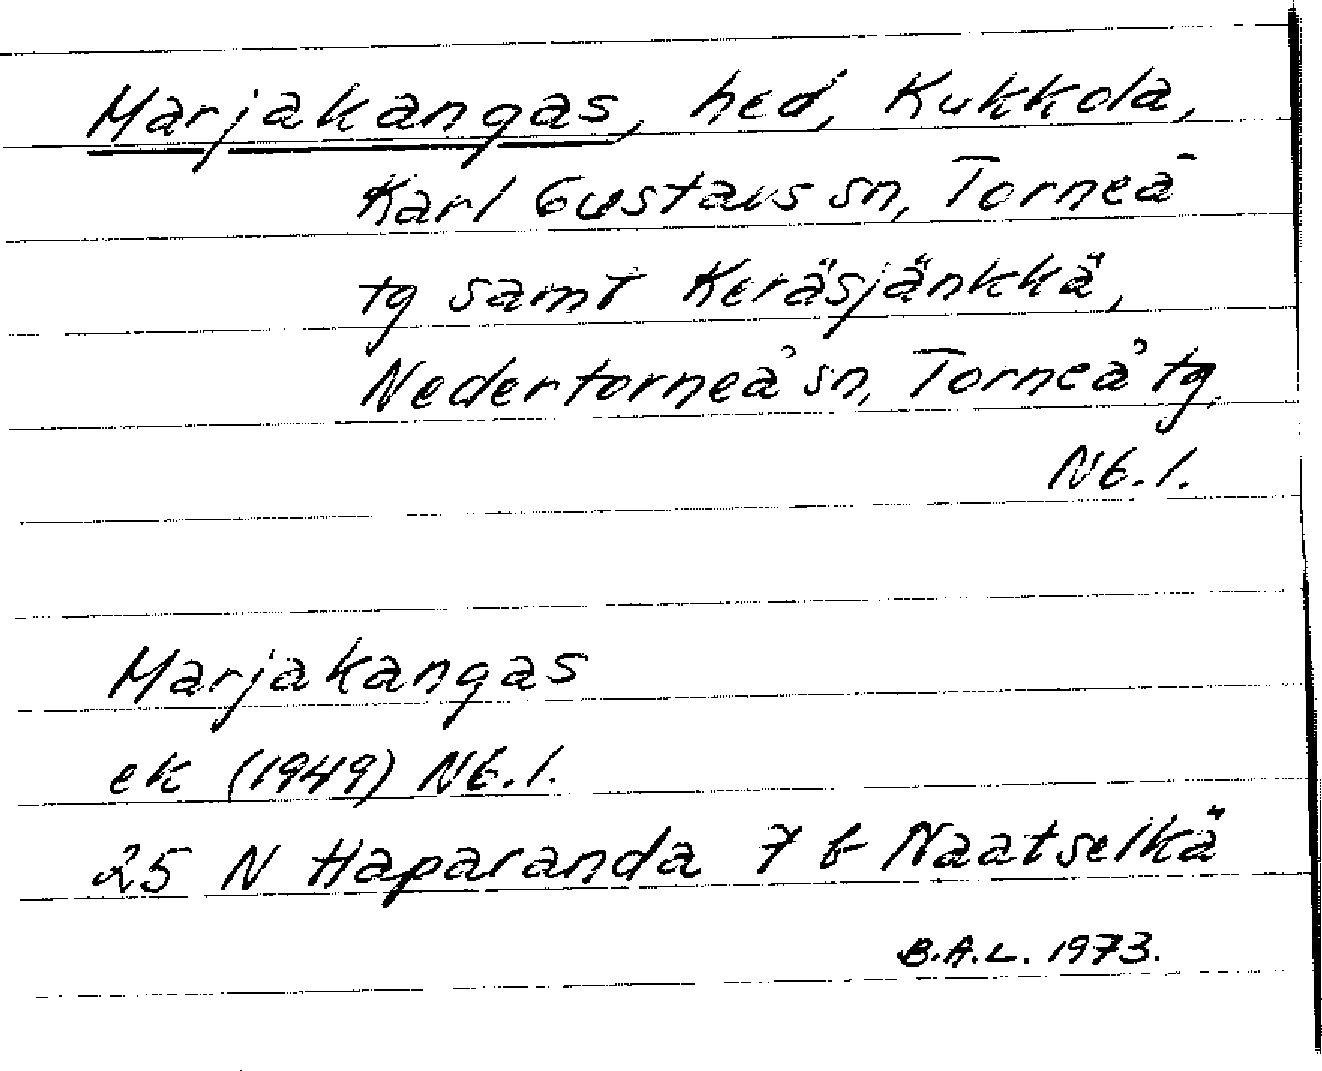 Marjakangas, hed, Kukkola,
Karl Gustavs sn, Torneå
tg samt Keräsjänkkä,
Nedertorneå sn, Torneå tg,
Nb. l.
Marjakangas
ek (1949) Nb. l.
25 N Haparanda 7 b Naatselkä
B.A.L. 1973.